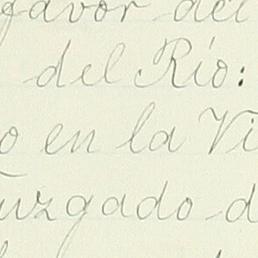 favor del
del Río:
o en la Vi
uzgado d